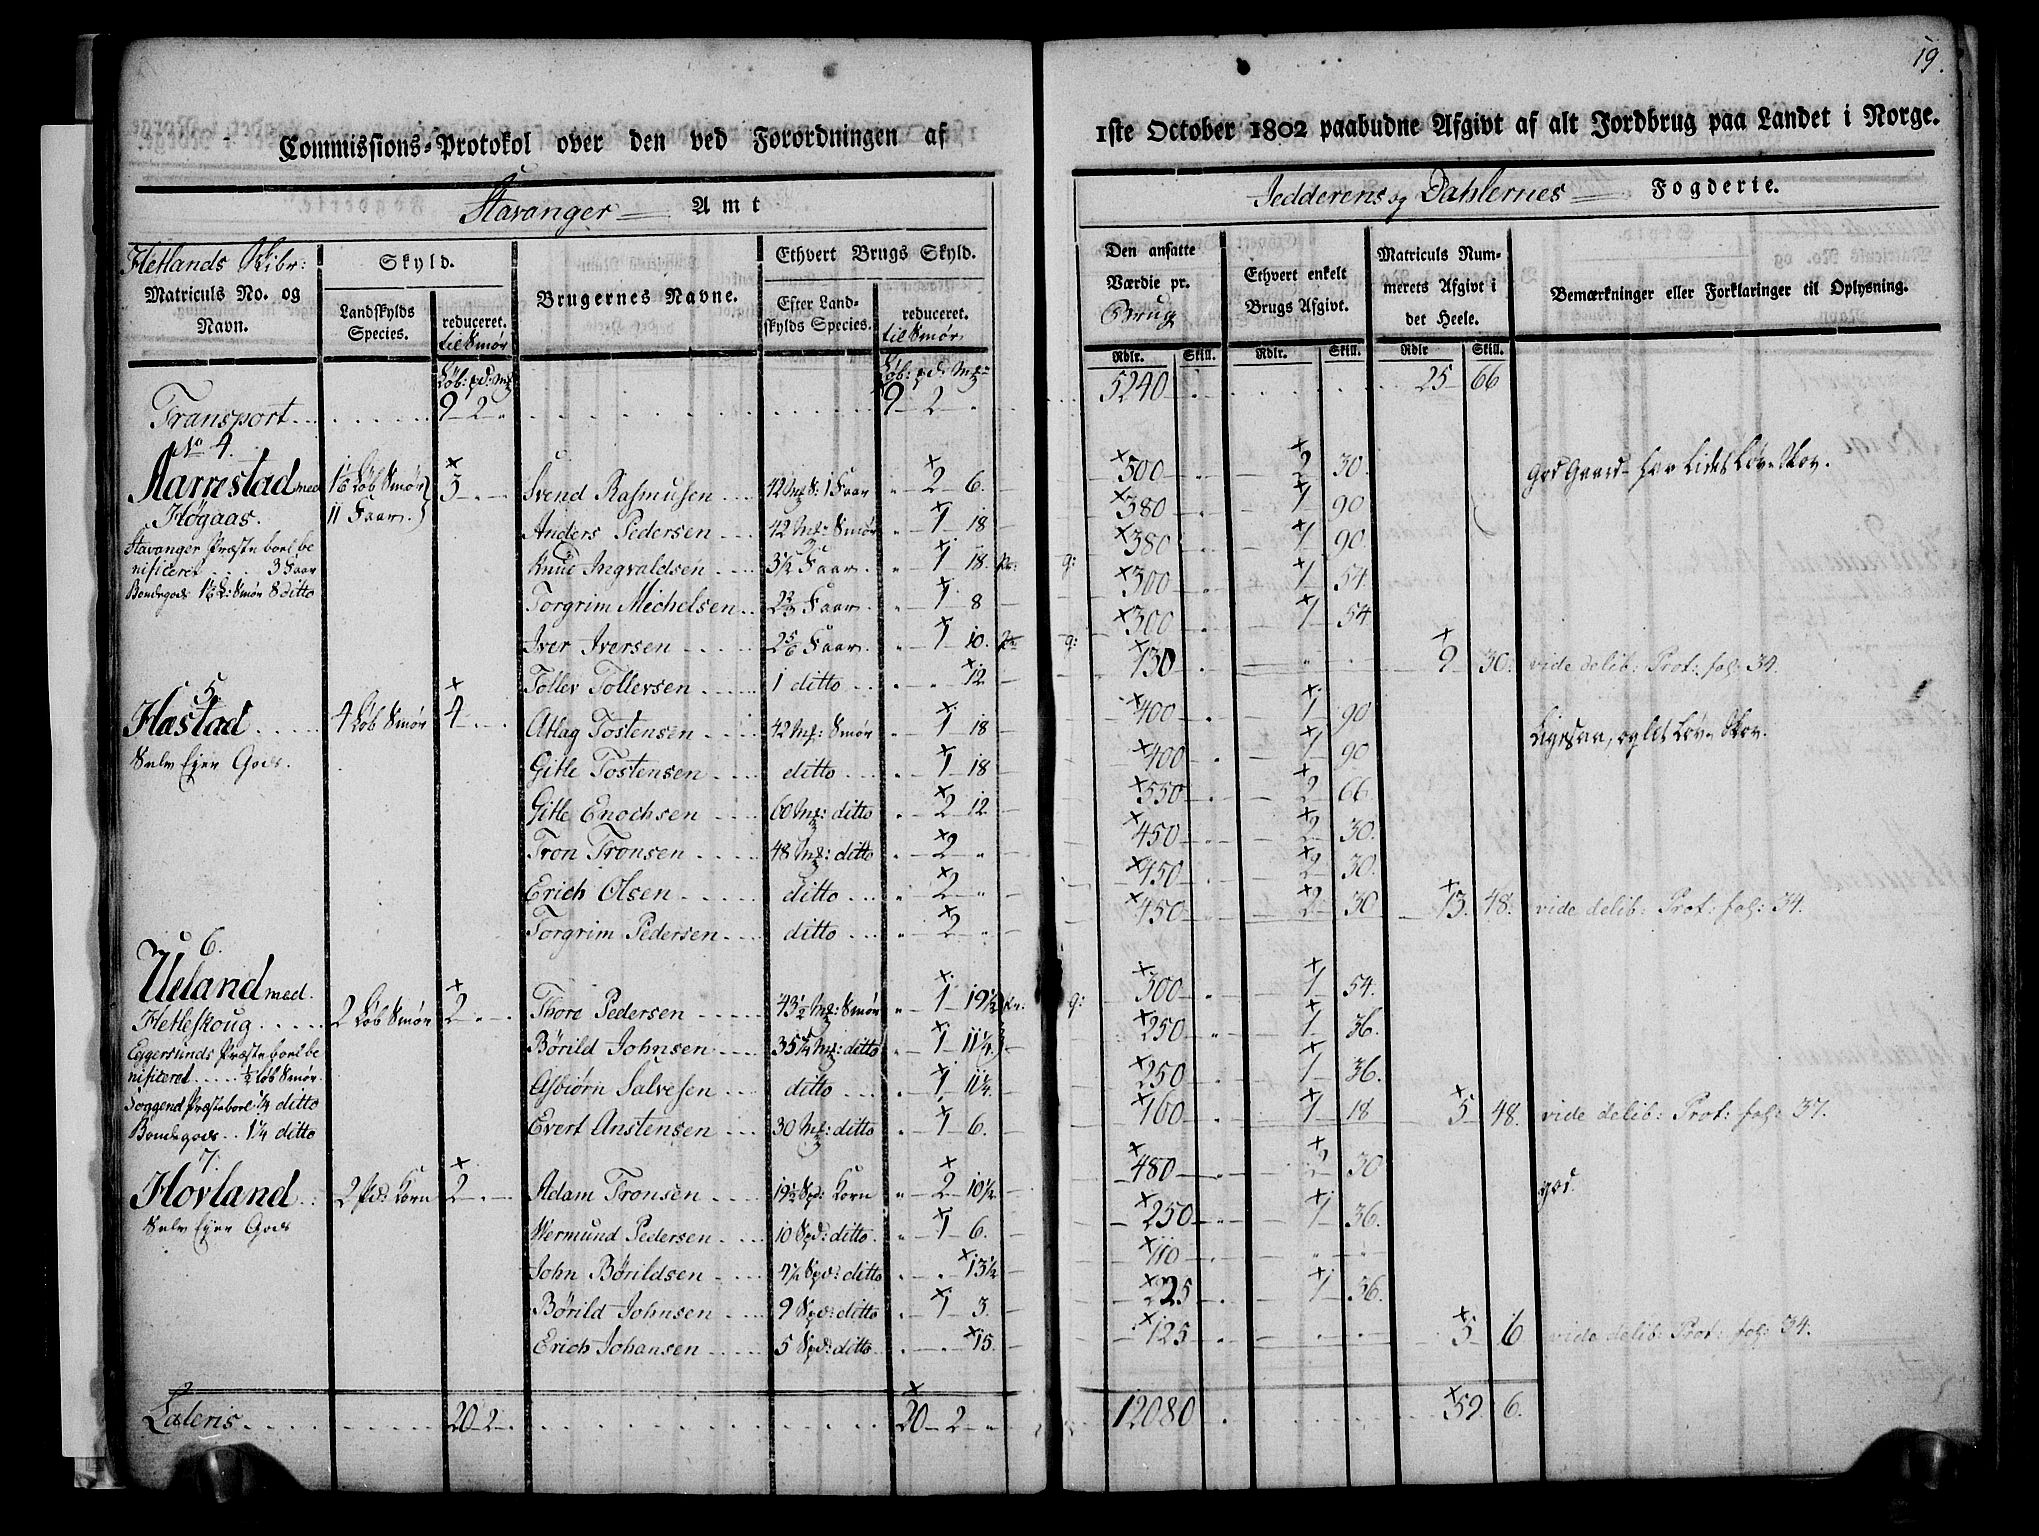 19.
Commissions-Protokol over den ved Forordningen af 1ste October 1802 paabudne Afgivt af alt Jordbrug paa Landet i Norge.
Stavanger Amt
Jedderens og Dahlernes Fogderie.
Hetlands Skibr:
Matriculs No. og Navn.
Skyld.
Landskylds Species.
reduceret. til Smør
Brugernes Navne.
Ethvert Brugs Skyld.
Efter Landskylds Species.
reduceret. til Smør.
Den ansatte Værdie pr. Brug
Ethvert enkelt Brugs Afgivt.
Matriculs Nummerets Afgivt i det Heele.
Bemærkninger eller Forklaringer til Oplysning.
Rdlr. Skill. Rdlr. Skill. Rdlr Skill.
Løb: pd: Mk Løb: pd: Mk
Transport 9 2 " 9 2 " 5240 25 66
No 4.
Aarrestad med 1 1/6 Løb Smør 3 Svend Rasmusen 42 Mk S: 1 Faar " 2 6. 500 2 30. god Gaard har Lidet Løv Skov.
Høgaas. 11 Faar. Anders Pedersen 42 Mk: Smør " 1 18 380 1 90
Stavanger Præstebort be
nificeret 3 Faar Knud Ingvaldsen 3 1/2 Faar " 1 18. 380 1 90.
Bondegods 1 1/6 L: Smør 8 ditto Torgrim Michelsen 2 2/3 Faar " 1 8 300 1 54
Iver Iversen 2 5/6 Faar " 1 10. 300 1 54
Toller Tollersen 1 ditto " " 12 130 9 30. vide delib: Prot: fol: 34.
5.
Hastad 4 Løb Smør 4 Aslag Tostensen 42 Mk: Smør " 1 18 400 1 90 Ligesaa, og lidt Løv Skov.
Selv Eyer Gods. Gitle Tostensen ditto " 1 18 400 1 90
Gitle Enochsen 60 Mk: ditto " 2 12 550 2 66
Tron Tronsen 48 Mk: ditto " 2 " 450 2 30.
Erich Olsen ditto " 2 " 450 2 30.
Torgrim Pedersen ditto " 2 " 450 2 30 13. 48. vide delib: Prot: fol: 34.
6.
Ueland med
Hetleskoug 2 Løb Smør 2 Thore Pedersen 43 1/2 Mk: Smør " 1 19 1/2 300 1 54.
Eggersunds Præstebort be Börild Johnsen 35 1/4 Mk: ditto " 1 11 1/4 250 1 36.
nificeret 1/2 Løb Smør. Asbiörn Salvesen ditto " 1 11 1/4. 250 1 36.
Soggend Præstebort 1/4 ditto
Bondegods 1 1/4 ditto Evert Anstensen 30 Mk: ditto " 1 6. 160 1 18 5 48. vide delib: Prot: fol: 37.
7.
Hovland 2 pd: Korn 2 Adam Tronsen 19 1/2 Spd: Korn " 2 10 1/2 480 2 30 god.
Selv Eyer Gods Wermund Pedersen 10 Spd: ditto " 1 6. 250 1 36.
John Börildsen 4 1/2 Spd: ditto " " 13 1/2 110
Börild Johnsen 9 Spd: ditto " 1 3. 225 1 36.
Erich Johansen 5 Spd: ditto " " 15. 125 5 6 vide delib: Prot: fol: 34.
Lateris 20 2 20 2 " 12080 59 6.